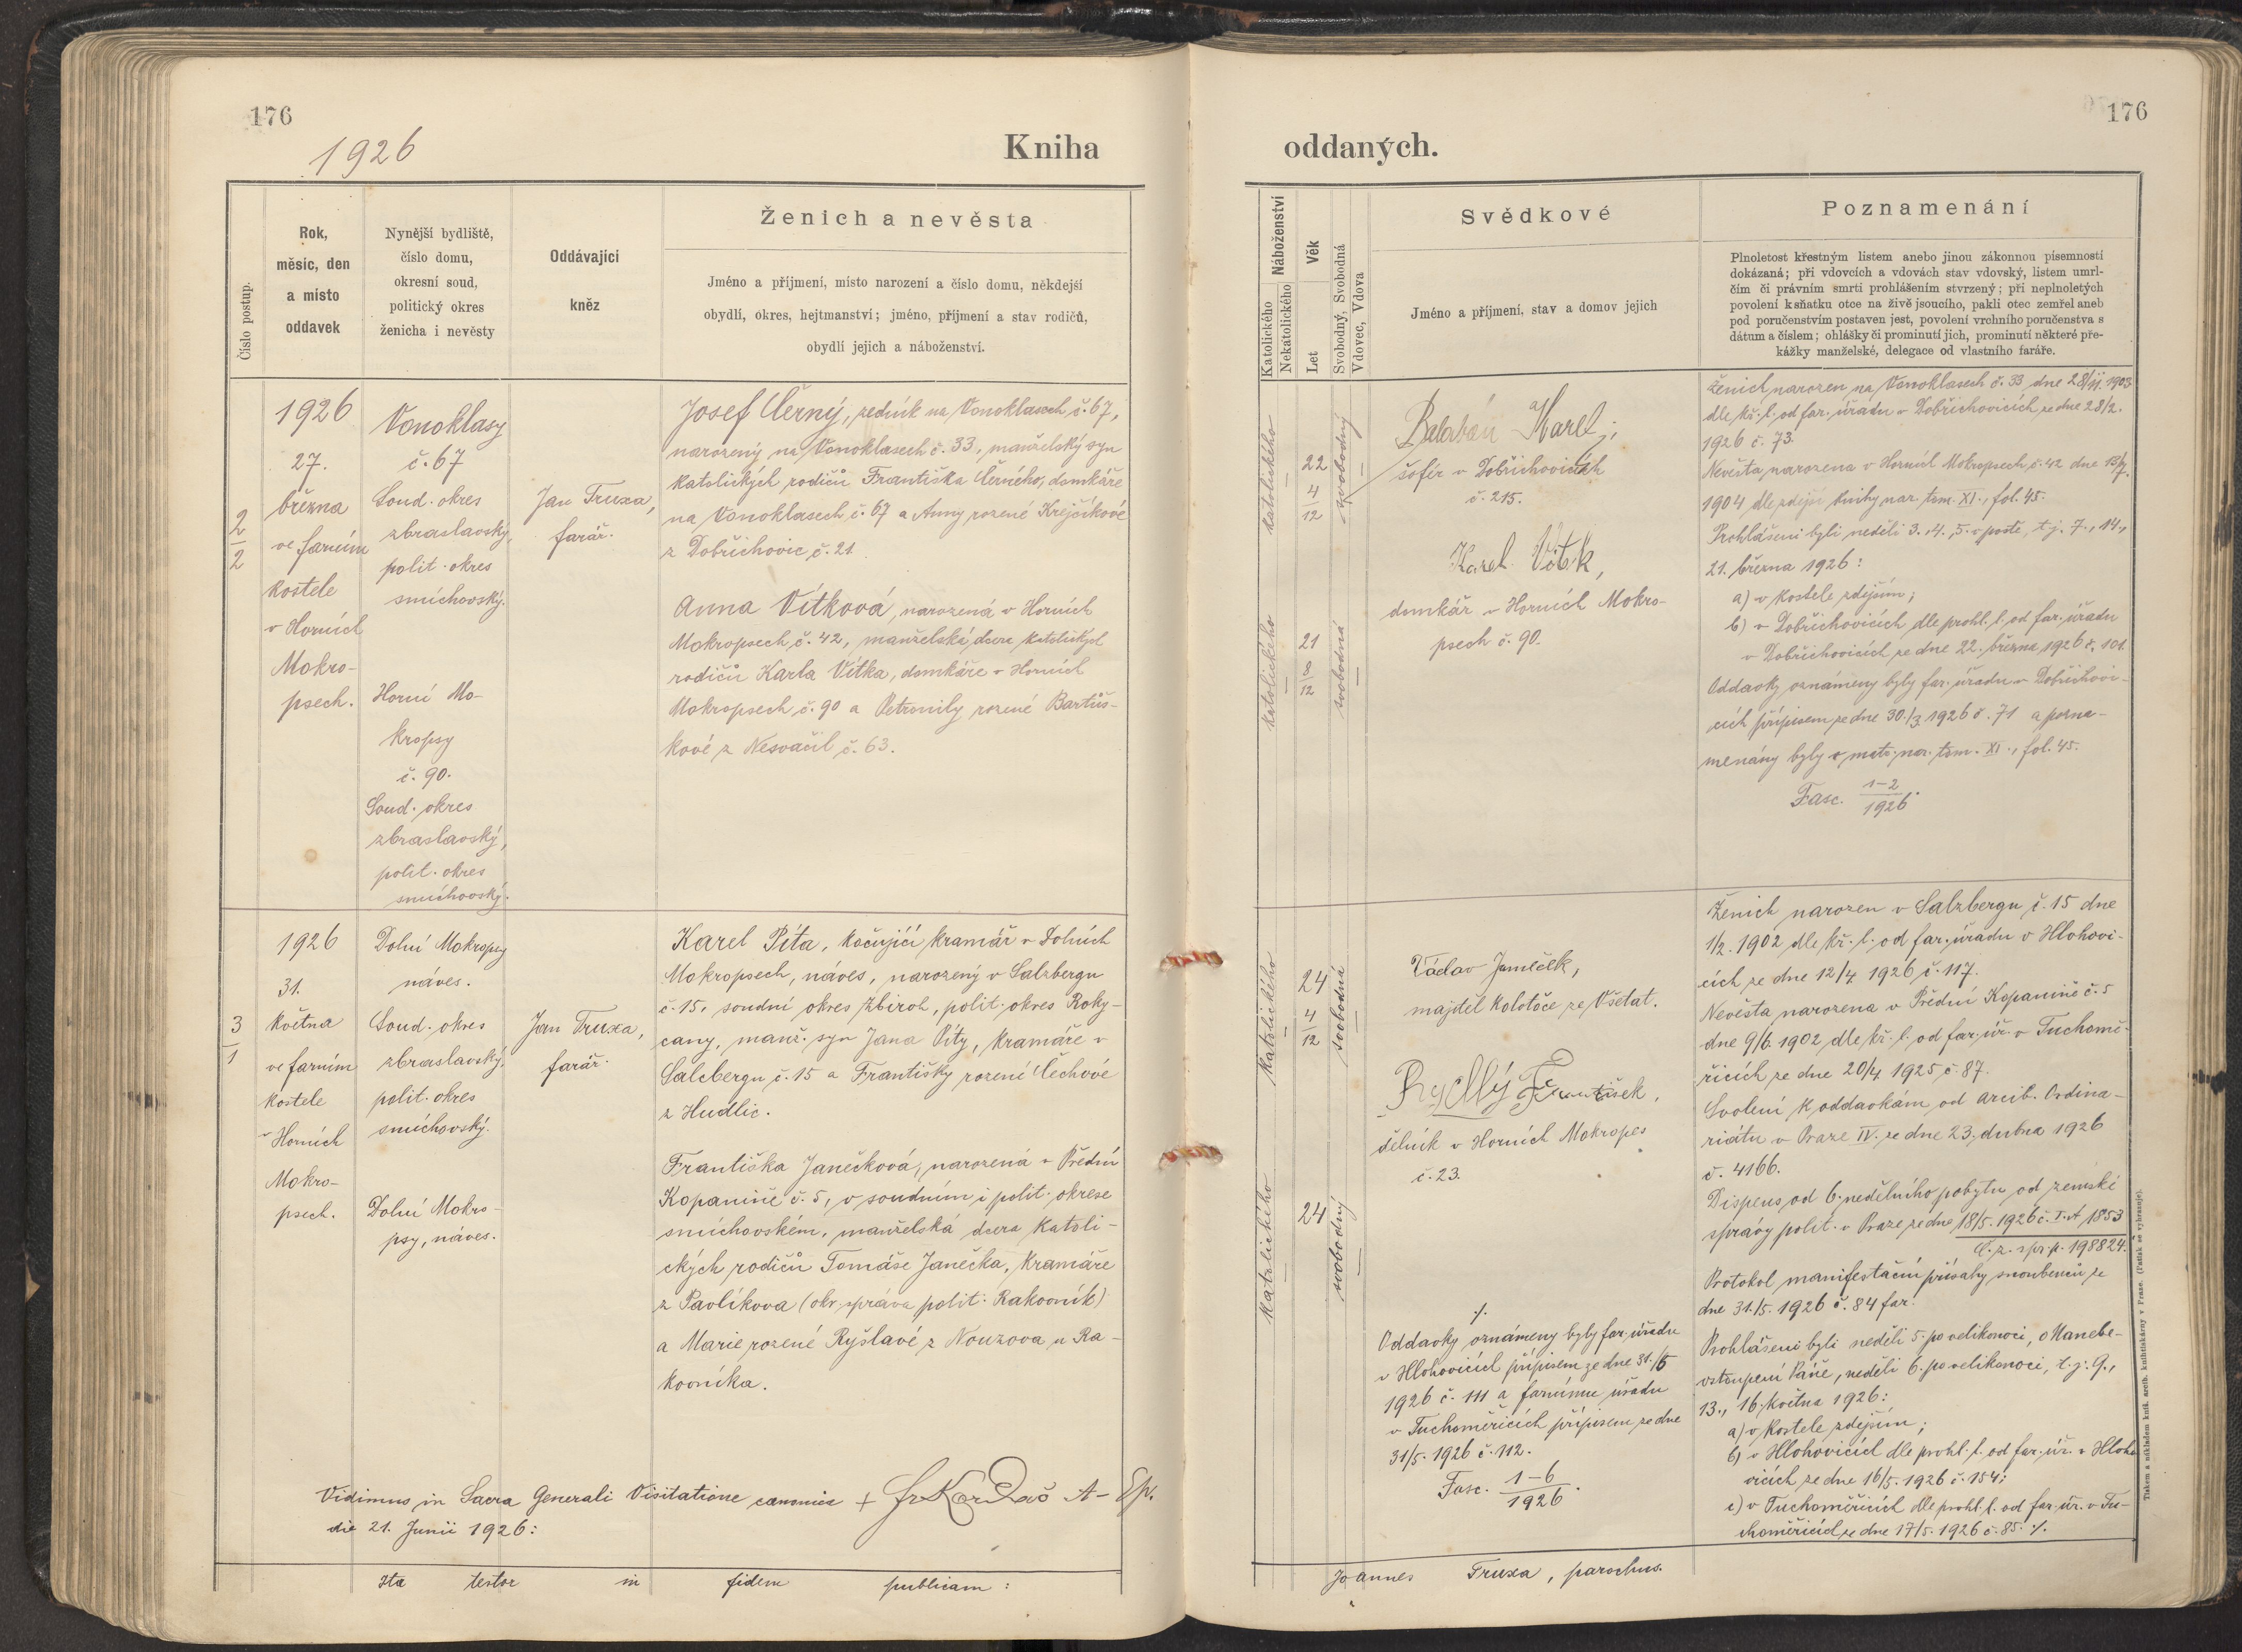 176
1926
Kniha
Číslo postup.
Rok,
měsíc, den
a místo
oddavek
Nynější bydliště,
číslo domu,
okresní soud,
politický okres
ženicha i nevěsty
Oddávající
kněz
Ženich a nevěsta
Jméno a příjmení, místo narození a číslo domu, někdejší
obydlí, okres, hejtmanství; jméno, příjmení a stav rodičů,
obydlí jejich a náboženství.
2
2
1926
27.
března
ve farním
kostele
v Horních
Mokro-
psech.
Vonoklasy
č. 67
Soud. okres
zbraslavský,
polit. okres
smíchovský.
Horní Mo-
kropsy
č. 90.
Soud. okres
zbraslavský,
polit. okres
smíchovský.
Jan Truxa,
farář.
Josef Černý, zedník na Vonoklasech č. 67,
narozený na Vonoklasech č. 33, manželský syn
katolických rodičů Františka Černého, domkáře
na Vonoklasech č. 67 a Anny rozené Krejčíkové
z Dobřichovic č. 21.
Anna Vítková, narozená v Horních
Mokropsech č. 42, manželská dcera katolických
rodičů Karla Vítka, domkáře v Horních
Mokropsech č. 90 a Petronily rozené Bartůš-
kové z Nesvačil č. 63.
3
1
1926
31.
května
ve farním
kostele
v Horních
Mokro-
psech.
Dolní Mokropsy
náves.
Soud. okres
zbraslavský,
polit. okres
smíchovský.
Dolní Mokro-
psy, náves.
Jan Truxa,
farář.
Karel Píta, kočující kramář v Dolních
Mokropsech, náves, narozený v Salzbergu
č. 15, soudní okres Zbiroh, polit. okres Roky-
cany, manž. syn Jana Píty, kramáře v
Salcbergu č. 15 a Františky rozené Čechové
z Hudlic.
Františka Janečková, narozená v Přední
Kopanině č. 5, v soudním i polit. okrese
smíchovském, manželská dcera katoli-
ckých rodičů Tomáše Janečka, kramáře
z Pavlíkova (okr. správa polit. Rakovník)
a Marie rozené Ryšlavé z Nouzova u Ra-
kovníka.
Vidimus in Sacra Generali Visitatione canonica + Fr Kordač A-Ep.
die 21. Junii 1926:
Ita testor in fidem publicam:
176
oddaných.
Náboženství
Katolického
Nekatolického
Věk
Let
Svobodný, Svobodná
Vdovec, Vdova
Svědkové
Jméno a příjmení, stav a domov jejich
Poznamenání
Plnoletost křestným listem anebo jinou zákonnou písemností
dokázaná; při vdovcích a vdovách stav vdovský, listem umrl-
čím či právním smrti prohlášením stvrzený; při neplnoletých
povolení k sňatku otce na živě jsoucího, pakli otec zemřel aneb
pod poručenstvím postaven jest, povolení vrchního poručenstva s
dátum a číslem; ohlášky či prominutí jich, prominutí některé pře-
kážky manželské, delegace od vlastního faráře.
katolického
22
4
12
svobodný
katolického
21
8
12
svobodná
Balabán Karel,
šofér v Dobřichovicích
č. 215.
Karel Vítek,
domkář v Horních Mokro-
psech č. 90.
Ženich narozen na Vonoklasech č. 33 dne 28/11. 1903
dle kř. l. od far. úřadu v Dobřichovicích ze dne 28/2.
1926 č. 73.
Nevěsta narozena v Horních Mokropsech č. 42 dne 13/7.
1904 dle zdejší knihy nar. tom. XI., fol. 45.
Prohlášeni byli neděli 3. 4., 5. v postě, t.j. 7., 14.,
21. března 1926:
a) v kostele zdejším;
b) v Dobřichovicích dle prohl. l. od far. úřadu
v Dobřichovicích ze dne 22. března 1926 č. 101.
Oddavky oznámeny byly far. úřadu v Dobřichovi-
cích přípisem ze dne 30./3 1926 č. 71 a pozna-
menány byly v matr. nar. tom. XI., fol. 45.
Fasc. 1-2
1926.
katolického
24
4
12
svobodná
katolického
24
svobodný
Václav Janeček,
majitel kolotoče ze Všetat.
Rychlý František,
dělník v Horních Mokropes
č. 23.
./.
Oddavky oznámeny byly far. úřadu
v Hlohovicích přípisem ze dne 31./5
1926 č. 111 a farnímu úřadu
v Tuchoměřicích přípisem ze dne
31/5. 1926 č. 112.
Fasc. 1-6
1926.
Ženich narozen v Salzbergu č. 15 dne
1/2. 1902 dle kř. l. od far. úřadu v Hlohovi-
cích ze dne 12/4 1926 č. 117.
Nevěsta narozena v Přední Kopanině č. 5
dne 9/6. 1902 dle kř. l. od far. úř. v Tuchomě-
řicích ze dne 20/4 1925 č. 87.
Svolení k oddavkám od arcib. Ordina-
riátu v Praze IV. ze dne 23. dubna 1926
č. 4166.
Dispens od 6. nedělního pobytu od zemské
správy polit. v Praze ze dne 18/5. 1926 č. I-A 1853
Č. z. spr. p. 198824.
Protokol manifestační přísahy snoubenců ze
dne 31./5. 1926 č. 84 far.
Prohlášeni byli neděli 5. po velikonoci, o Nanebe-
vstoupení Páně, neděli 6. po velikonoci, t.j. 9.,
13., 16. května 1926:
a) v kostele zdejším;
b) v Hlohovicích dle prohl. l. od far. úř. v Hloho
vicích ze dne 16/5. 1926 č. 154;
c) v Tuchoměřicích dle prohl. l. od far. úř. v Tu-
choměřicích ze dne 17/5. 1926 č. 85. ./.
Joannes Truxa, parochus.
Tiskem a nákladem kníž. arcib. knihtiskárny v Praze. (Patisk se vyhrazuje).